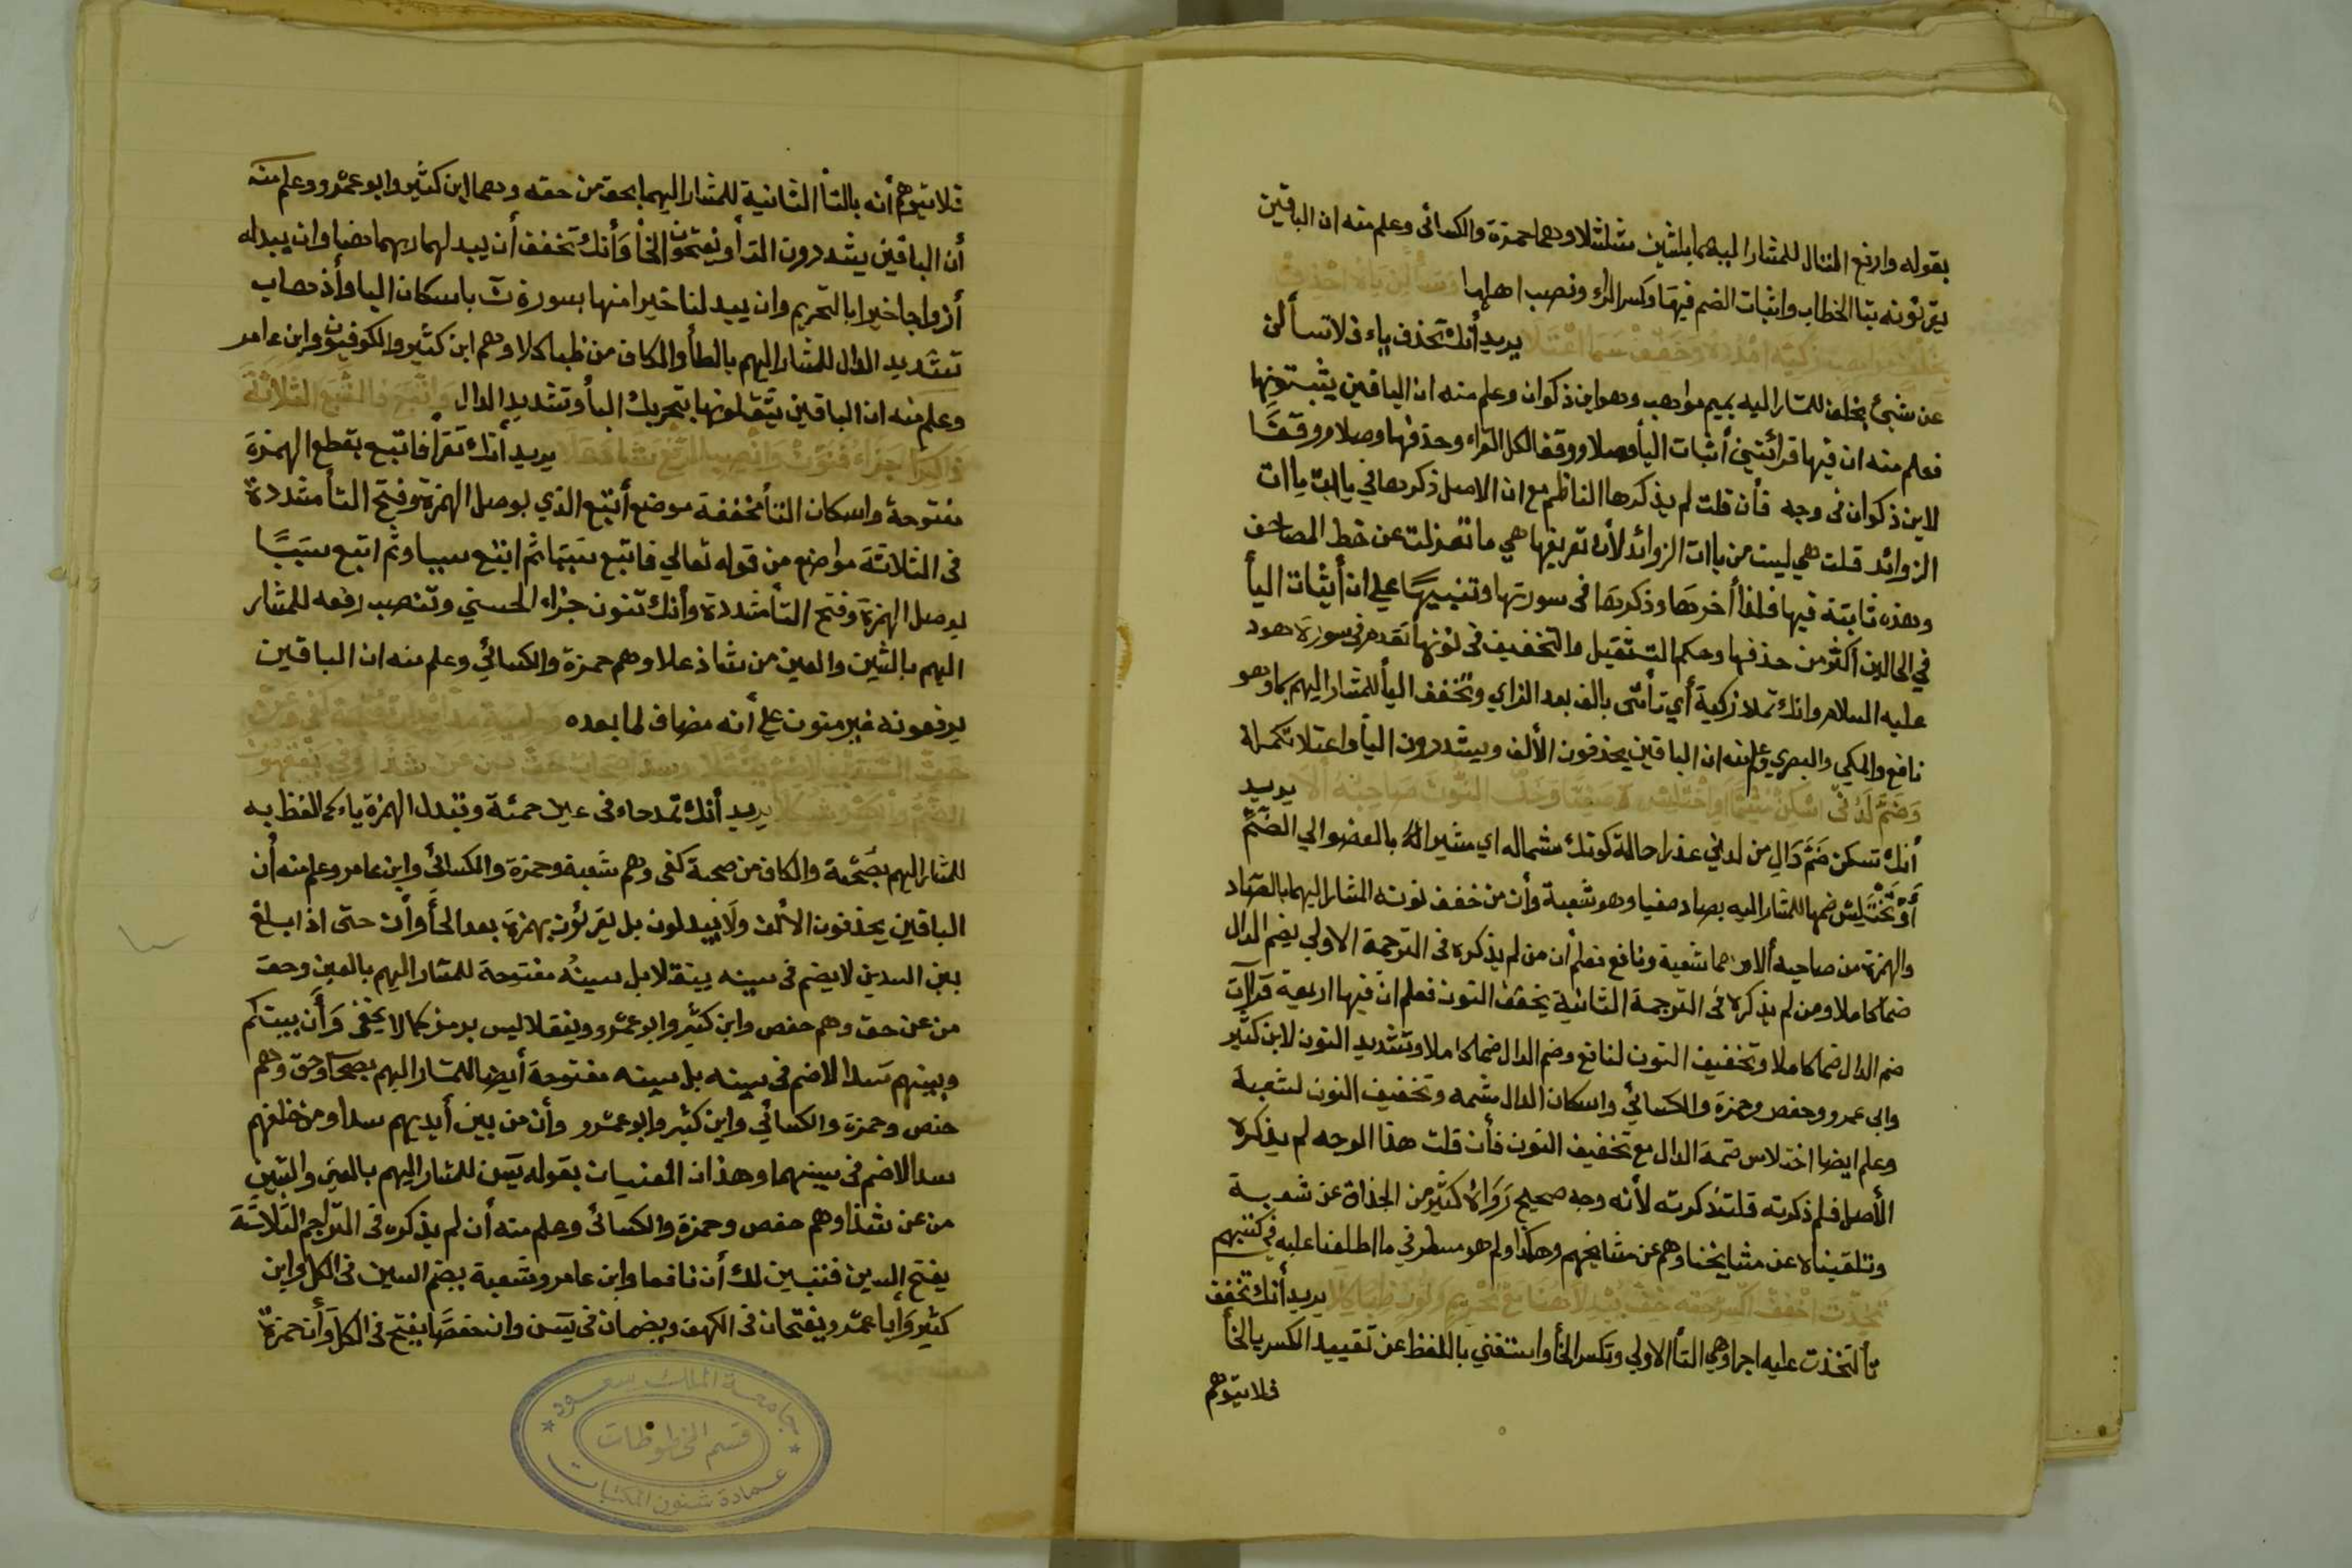 بقوله وارفع المتال للمشار اليهما بشين شلشلا وهما حمزة والكسائى وعلم منه ان الباقين
يقرئونه بتا الخطاب واثبات الضم فيها وكسر الراء ونصب اهلها
يريد أنك تحذف ياء فلا تسألن
عن شئ بخلف للمشار اليه بميم مواهب وهو ابن ذكوان وعلم منه ان الباقين يثبتونها
فعلم منه ان فيها قرائتين أثبات اليأ وصلا ووقفا لكل القراء وحذفها وصلا ووقفًا
لابن ذكوان فى وجه فأن قلت لم يذكرها الناظم مع ان الاصل ذكرها في يات
الزوائد قلت هي ليست من يأات الزوائد لأن تعريفها هي ما انعزلت عن خط المصاحف
وهذه ثابتة فيها فلذا أخرها وذكرها فى سورتها وتنبيهًا علي ان أثبات اليأ
في الحالين أكثر من حذفها وحكم التثقيل والتخفيف فى نونها تقدم فى سورة هود
عليه السلام وانك تملا زكية أي تأتى بالف بعد الزاي وتخفف اليأ للمشار اليهم بسما وهو
نافع والمكي والبصري وعلم منه ان الباقين يحذفون الألف ويشددون اليأ واعتلا تكملة
يريد
أنك تسكن ضم دال من لدني عذرا حالة كونك مشما له اي مشيرا له بالعضو الي الضم
أو تختلس ضمها للمشار اليه بصاد صفيا وهو شعبة وأن من خفف نونه المشار اليهما بالصاد
والهمزة من صاحبه ألا وهما شعبة ونافع فعلم أن من لم يذكره فى الترجمة الاولي يضم الدال
ضما كاملا ومن لم يذكره فى الترجمة الثانية يخفف النون فعلم ان فيها اربعة قرآآت
ضم الدال ضما كاملا وتخفيف النون لنافع وضم الدال ضما كاملا وتشديد النون لابن كثير
وابى عمرو وحفص وحمزة والكسائي واسكان الدال مشمه وتخفيف النون لشعبة
وعلم ايضا اختلاس ضمة الدال مع تخفيف النون فأن قلت هذا الوجه لم يذكره
الأصل فلم ذكرته قلت ذكرته لأنه وجه صحيح رواه كثير من الحذاق عن شعبة
وتلقيناه عن مشايخنا وهم عن مشايخهم وهكذا ولم هو مسطر في ما اطلعنا عليه فى كتبهم
تخذت اخفف اكسر حقه خف يبدلا هنا مع تحريم ونون ظبا كلا يريد أنك تخفف
تأ لتخذت عليه اجرا وهي التأ الاولي وتكسر الخأ واستغني باللفظ عن تقييد الكسر بالخأ
فلا يتوهم
فلا يتوهم أنه بالتأ الثانية للمشار اليهما بحق من حقه وهما ابن كثير وابو عمرو وعلم منه
أن الباقين يشددون التأ ويفتحون الخأ وأنك تخفف أن يبدلهما ربهما هنا وان يبدله
أزواجا خيرا بالتحريم وان يبدلنا خيرا منها بسورة ن باسكان اليا وأخذ صاب
تشديد الدال للمشار اليهم بالظأ والكاف من ظبا كلا وهم ابن كثير والكوفيون وابن عامر
وعلم منه ان الباقين يثقلونها بتحريك البأ وتشديد الدال
يريد أنك تقرأ فاتبع بقطع الهمزة
مفتوحة واسكان التأ مخففة موضع أتبع الذي بوصل الهمزة وفتح التأ مشددة
فى الثلاثة مواضع من قوله تعالي فاتبع سببا ثم اتبع سببا وثم اتبع سببًا
بوصل الهمزة وفتح التأ مشددة وأنك تنون جزاء الحسني وتنصب رفعه للمشار
اليهم بالشين والعين من شاذ علا وهم حمزة والكسائي وعلم منه ان الباقين
يرفعونه غير منون علي أنه مضاف لما بعده
يريد أنك تمد حاء فى عين حمئة وتبدل الهمزة ياء كما لفظ به
للمشار اليهم بصحبة والكاف من صحبة كفى وهم شعبة وحمزة والكسائى وابن عامر وعلم منه أن
الباقين يحذفون الألف ولا يبدلون بل يقرئون بهمزة بعد الحأ وأن حتى اذا بلغ
بين السدين لا يضم فى سينه ينقلا بل سينه مفتوحة للمشار اليهم بالعين وحق
من عن حق وهم حفص وابن كثير وابو عمرو وينقلا ليس برمز كما لا يخفى وأن بينكم
وبينهم سدا لا ضم فى سينه بل سينه مفتوحة أيضا للمشار اليهم بصحاب وحق وهم
حفص وحمزة والكسائي وابن كثير وابو عمرو وأن من بين أيديهم سدا ومن خلفهم
سدا لا ضم فى سينهما وهذان المعنيات بقوله يسن للمشار اليهم بالعين والشين
من عن شذا وهم حفص وحمزة والكسائى وعلم منه أن لم يذكره فى التراجم الثلاثة
يفتح السين فتبين لك أن نافعا وابن عامر وشعبة بضم السين فى الكل وابن
كثير وأبا عمرو يفتحان فى الكهف ويضمان فى يسن وان حفصا يفتح فى الكل وأن حمزة
جامعة الملك سعود
قسم المخطوطات
عمادة شئون المكتبات